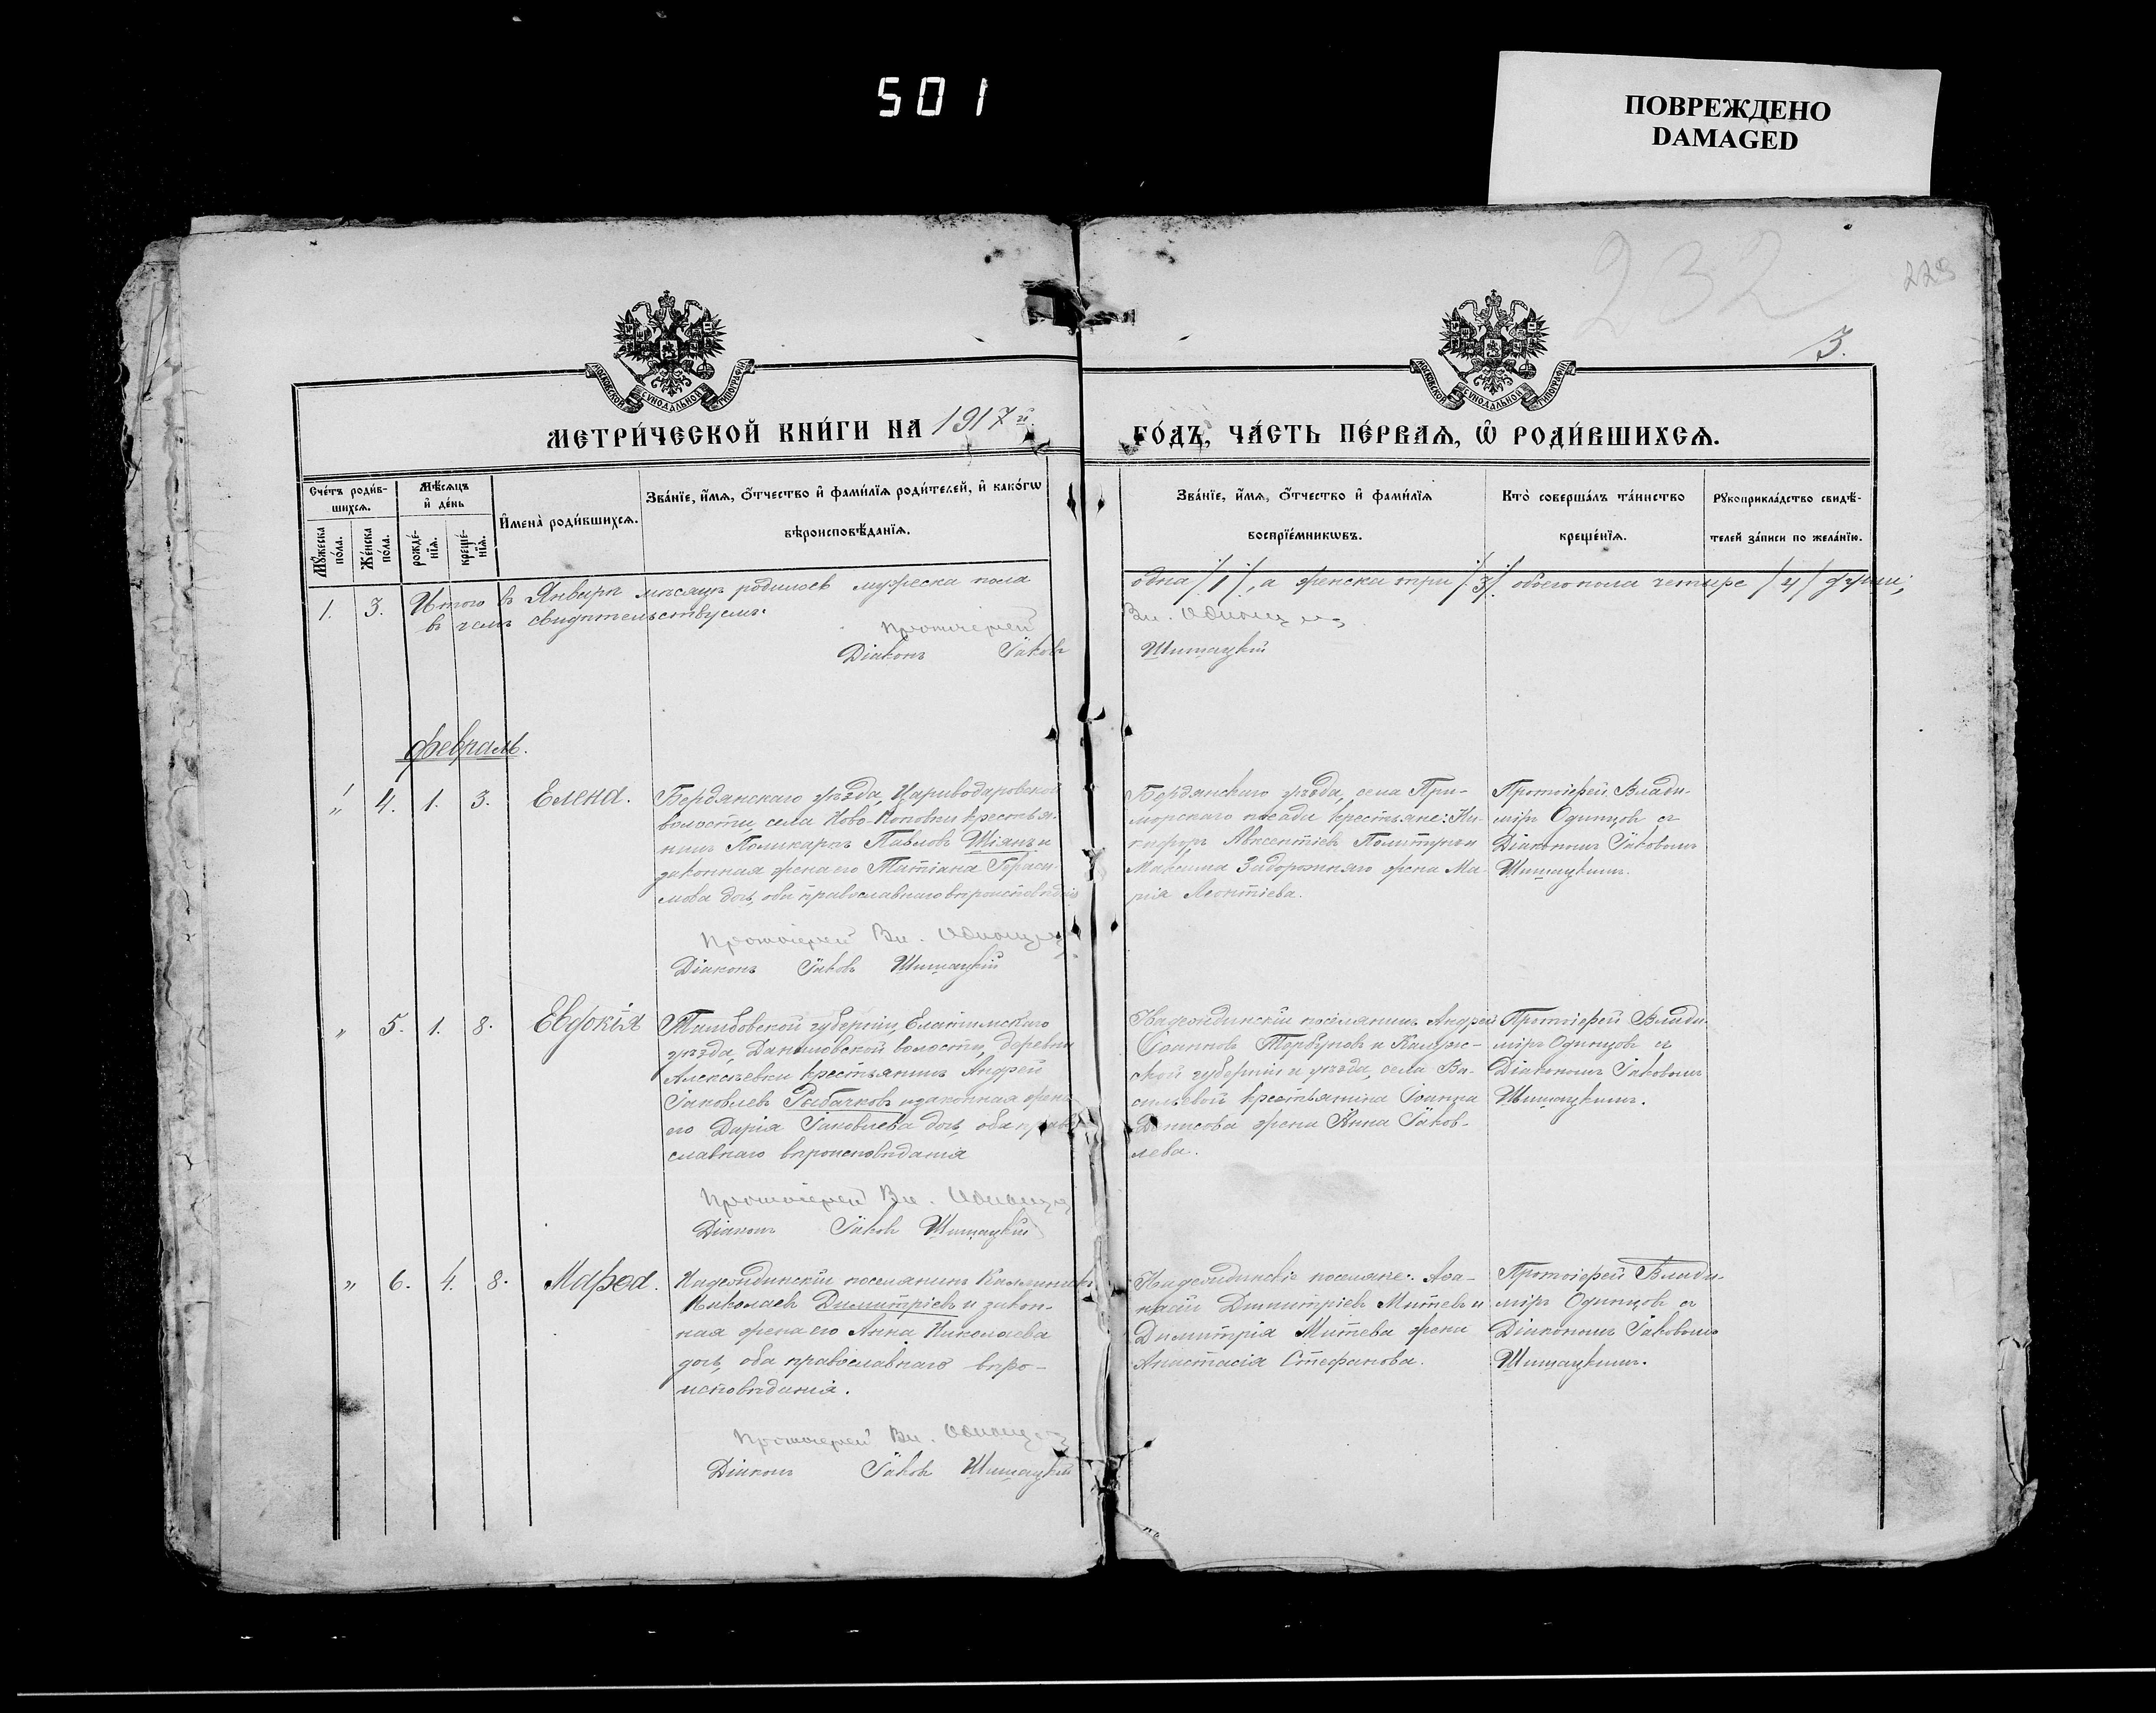 501
ПОВРЕЖДЕНО
DAMAGED
232
229
3.
МОСКОВСКОЙ СѴНОДАЛЬНОЙ ТИПОГРАФІИ
МОСКОВСКОЙ СѴНОДАЛЬНОЙ ТИПОГРАФІИ
МЕТРИ́ЧЕСКОЙ КНИ́ГИ НА 1917й
ГО́ДЪ, ЧА́СТЬ ПЕ́РВАѦ, Ѡ҆ РОДИ́ВШИХСѦ.
Сче́тъ роди́в-
шихсѧ.
Мѹ́жеска по́ла.
Же́нска по́ла.
Мѣ́сѧцъ
и҆ де́нь
рожде́-
нїѧ.
креще́-
нїѧ.
И҆мена̀ роди́вшихсѧ.
Зва́нїе, и҆́мѧ, ѻ҆́тчество и҆ фами́лїѧ роди́телей, и҆ како́гѡ
вѣроисповѣ́данїѧ.
Зва́нїе, и҆́мѧ, ѻ҆́тчество и҆ фами́лїѧ
воспрїе́мникѡвъ.
Кто̀ соверша́лъ та́инство
креще́нїѧ.
Рѹкоприкла́дство свидѣ́-
телей за́писи по жела́нїю.
1. 3. Итого въ Январѣ мѣсяцѣ родилось мужеска пола
одна /1/, а женска три /3/ обоего пола четыре /4/ души;
въ чемъ свидѣтельствуемъ:
Протоіерей
Вл. Одинцовъ
Діаконъ Іаковъ
Шишацкій
Февраль.
" 4. 1. 3. Елена.
Бердянскаго уѣзда, Цариводаровской
волости, села Ново-Поповки крестья-
нинъ Поликарпъ Павловъ Шіянъ и
законная жена его Татіана Гераси-
мова дочь, оба православнаго вѣроисповѣданія
Протоіерей Вл. Одинцовъ
Діаконъ Іаковъ Шишацкій
Бердянскаго уѣзда, села При-
морскаго посада крестьяне: Ни-
кифоръ Авксентіевъ и
Максима Задорожняго жена Ма-
рія Леонтіева.
Протоіерей Влади-
міръ Одинцовъ съ
Діакономъ Іаковомъ
Шишацкимъ.
" 5. 1. 8. Евдокія
Тамбовской губерніи, Елатомскаго
уѣзда, Даниловской волости, деревни
Алексѣевки крестьянинъ Андрей
Іаковлевъ Рыбачковъ и законная жена
его Дарія Іаковлева дочь, оба право-
славнаго вѣроисповѣданія
Протоіерей Вл. Одинцовъ
Діаконъ Іаковъ Шишацкій
Надеждинскій поселянинъ Андрей
Іоанновъ Торбуновъ и Калуж-
ской губерніи и уѣзда, села Ва-
сильевой крестьянина Іоанна
Денисова жена Анна Іаков-
лева.
Протоіерей Влади-
міръ Одинцовъ съ
Діакономъ Іаковомъ
Шишацкимъ.
" 6. 4. 8. Марфа.
Надеждинскій поселянинъ Каллиникъ
Николаевъ Димитріевъ и закон-
ная жена его Анна Николаева
дочь, оба православнаго вѣро-
исповѣданія.
Протоіерей Вл. Одинцовъ
Діаконъ Іаковъ Шишацкій
Надеждинскіе поселяне: Аѳа-
насій Димитріевъ Митевъ и
Димитрія Митева жена
Анастасія Стефанова.
Протоіерей Влади-
міръ Одинцовъ съ
Діакономъ Іаковомъ
Шишацкимъ.